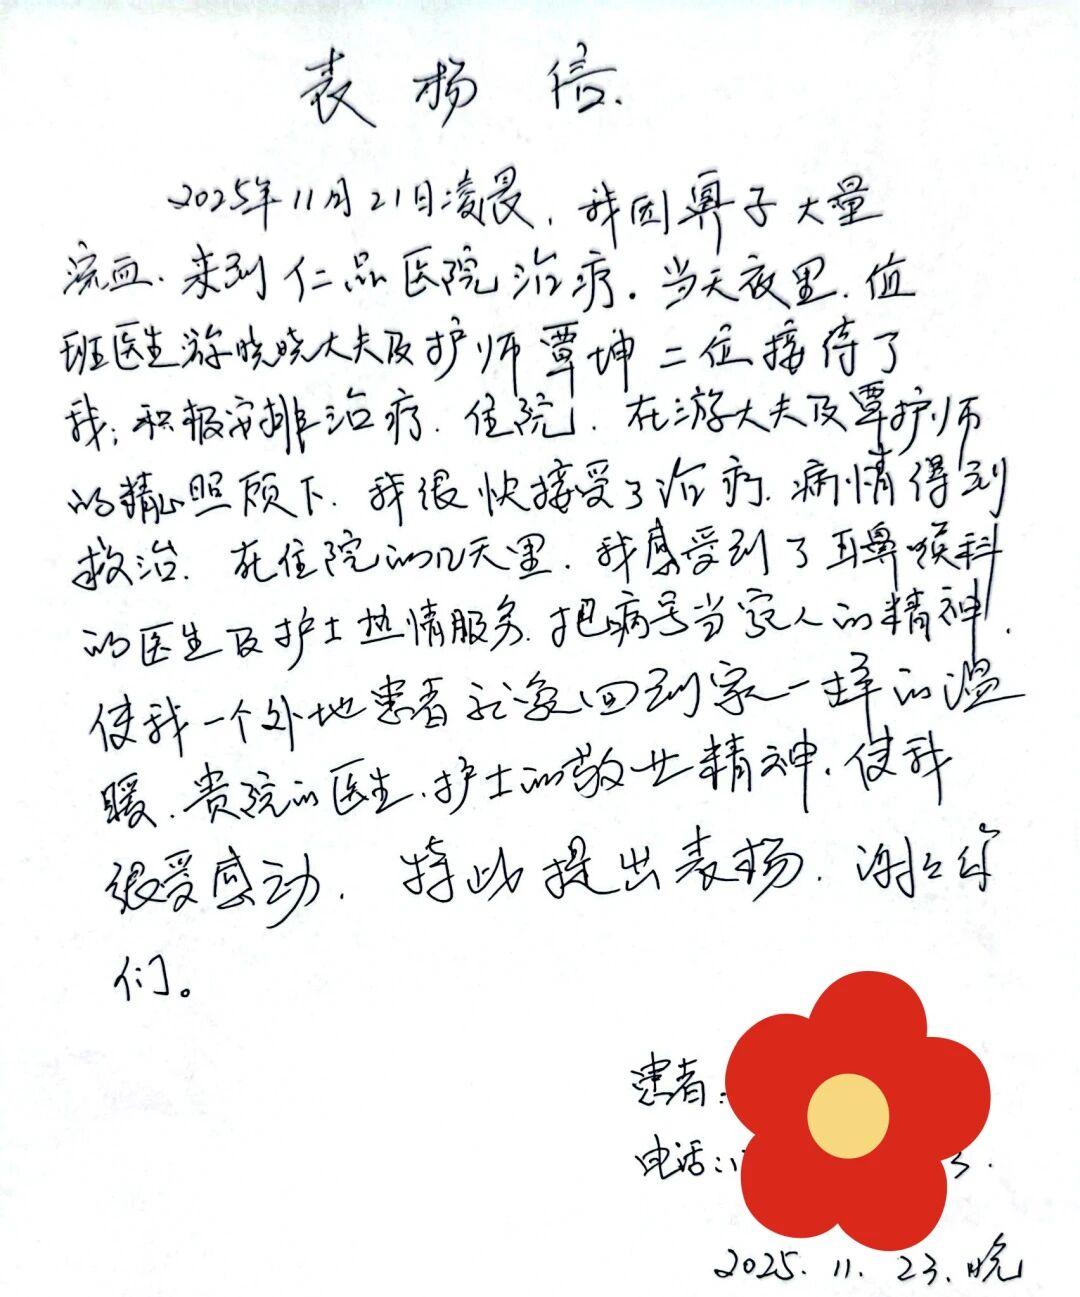 表扬信.
2025年11月21日凌晨，我因鼻子大量
流血、来到仁品医院治疗。当天夜里、值
班医生游晓晓大夫及护师覃坤二位接待了
我；积极安排治疗、住院、在游大夫及覃护师
的精心照顾下、我很快接受了治疗、病情得到
救治、在住院的几天里、我感受到了耳鼻喉科
的医生及护士热情服务、把病号当家人的精神、
使我一个外地患者 回到家一样的温
暖、贵院的医生、护士的敬业精神、使我
很受感动、特此提出表扬、谢谢你
们。
患者：
电话：
2025.11.23.晚